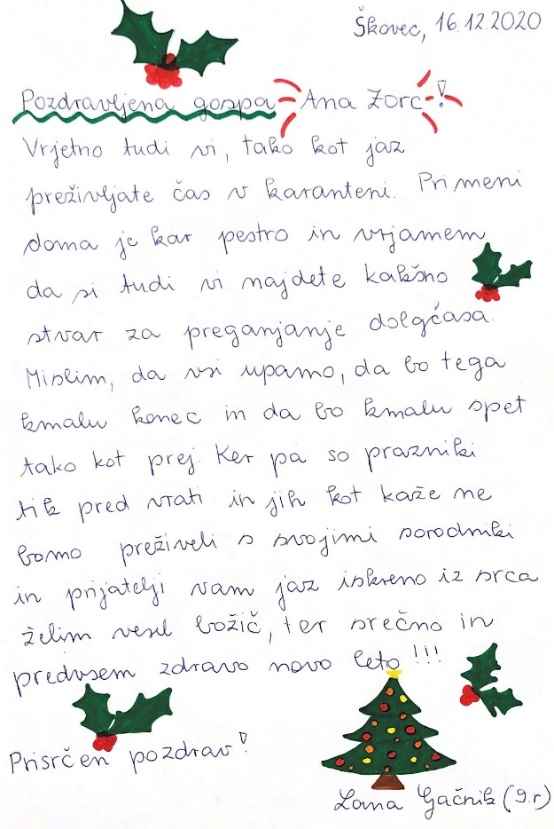 Škovec, 16.12.2020
Pozdravljena gospa Ana Zorc!
Vrjetno tudi vi, tako kot jaz
preživljate čas v karanteni. Pri meni
doma je kar pestro in vrjamem
da si tudi vi najdete kakšno
stvar za preganjanje dolgčasa.
Mislim, da vsi upamo, da bo tega
kmalu konec in da bo kmalu spet
tako kot prej. Ker pa so prazniki
tik pred vrati in jih kot kaže ne
bomo preživeli s svojimi sorodniki
in prijatelji vam jaz iskreno iz srca
želim vesel božič, ter srečno in
predvsem zdravo novo leto!!!
Prisrčen pozdrav!
Lana Gačnik (9.r)